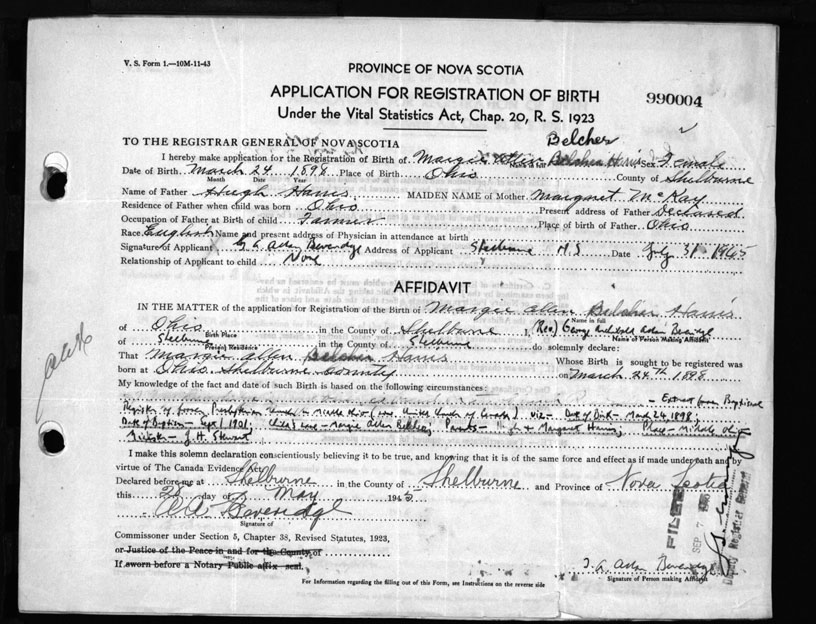 V. S. Form 1.—10M-11-43
PROVINCE OF NOVA SCOTIA
APPLICATION FOR REGISTRATION OF BIRTH
990004
Under the Vital Statistics Act, Chap. 20, R. S. 1923
Belcher
TO THE REGISTRAR GENERAL OF NOVA SCOTIA
I hereby make application for the Registration of Birth of Margie Belcher Harris Sex Female
Date of Birth March 24 1898 Place of Birth Ohio County of Shelburne
Month Date Year
Name of Father Hugh Harris MAIDEN NAME of Mother Margaret McKay
Residence of Father when child was born Ohio Present address of Father Deceased
Occupation of Father at Birth of child Farmer Place of birth of Father Ohio
Race English Name and present address of Physician in attendance at birth
Signature of Applicant G A Aden Beveridge Address of Applicant Shelburne N.S Date July 31 1945
Relationship of Applicant to child None
AFFIDAVIT
IN THE MATTER of the application for Registration of the Birth of Margie Allan Belcher Harris
Name in full
of Ohio in the County of Shelburne I, (Rev) George Archibald Beveridge
Birth Place Name of Person Making Affidavit
of Shelburne in the County of Shelburne do solemnly declare:
Present Residence
That Margie Allan Belcher Harris Whose Birth is sought to be registered was
born at Ohio Shelburne County on March 24th 1898
My knowledge of the fact and date of such Birth is based on the following circumstances:
Extract from Baptismal
Register of Presbyterian Church Middle Ohio (now United Church of Canada) Viz- Date of Birth - March 24, 1898;
Date of Baptism - Sept 1, 1901; Child's name - Margie Allan Belcher; Parents - Hugh & Margaret Harris; Place - Middle Ohio
Minister - J. H. Stewart
I make this solemn declaration conscientiously believing it to be true, and knowing that it is of the same force and effect as if made under oath and by
virtue of The Canada Evidence Act.
Declared before me at Shelburne in the County of Shelburne and Province of Nova Scotia
this day of May 1945
Beveridge
Signature of
Commissioner under Section 5, Chapter 38, Revised Statutes, 1923,
or Justice of the Peace in and for the County of
If sworn before a Notary Public affix seal.
Signature of Person making Affidavit
For Information regarding the filling out of this Form, see Instructions on the reverse side
FILED
SEP 7
Deputy Registrar